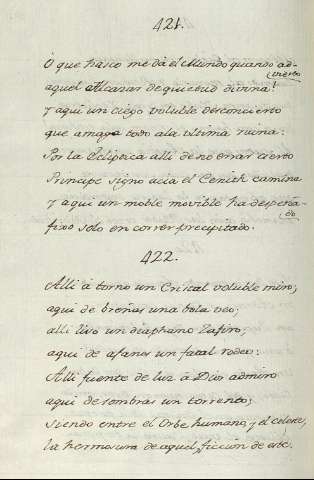 421.
O que hasco me dà el Mundo quando ad-
vierto
aquel Alcazar de quietud divina!
y aqui un ciego voluble desconcierto
que amaga todo ala ultima ruina:
Por la Ecliptica alli de no errar cierto
Principe signo acia el Cenith camina
y aqui un moble movible ha despeña-
do
fixo solo en correr precipitado.
422.
Alli à torno un Cristal voluble miro,
aqui de breñas una bola veo;
alli liso un diaphano Zafiro,
aqui de afanes un fatal rodeo:
Alli fuente de luz à Dios admiro
aqui de sombras un torrente;
siendo entre el Orbe humano, y el celeste,
la hermosura de aquel, ficcion de este.